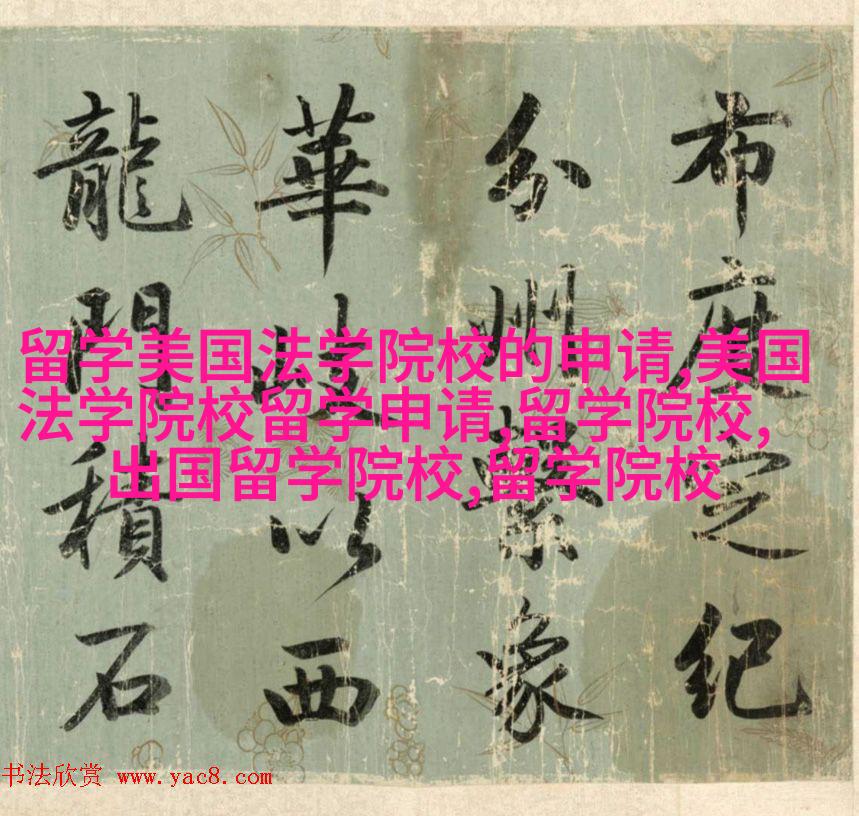 布度定紀
分州象
華以西
龍門積石
留学美国法学院校的申请,美国
法学院校留学申请,留学院校,
出国留学院校,留学院校
书法欣赏 www.yac8.com